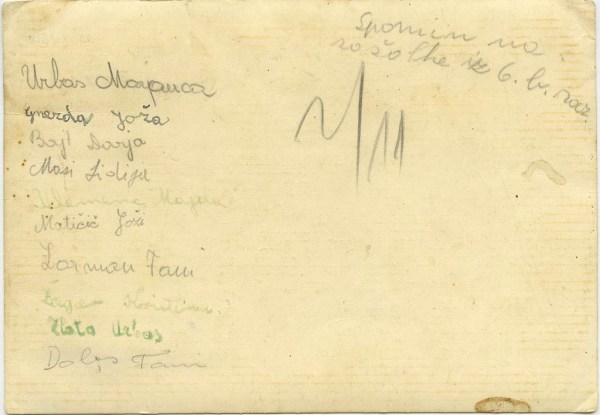 Spomin na
sošolke iz 6. b. raz.
Urbas Marjanca
Gnezda Joža
Bajt Darja
Masi Lidija
Magda
Matičič Joži
Lorman Fani
Zlata Urbas
Doles Fani